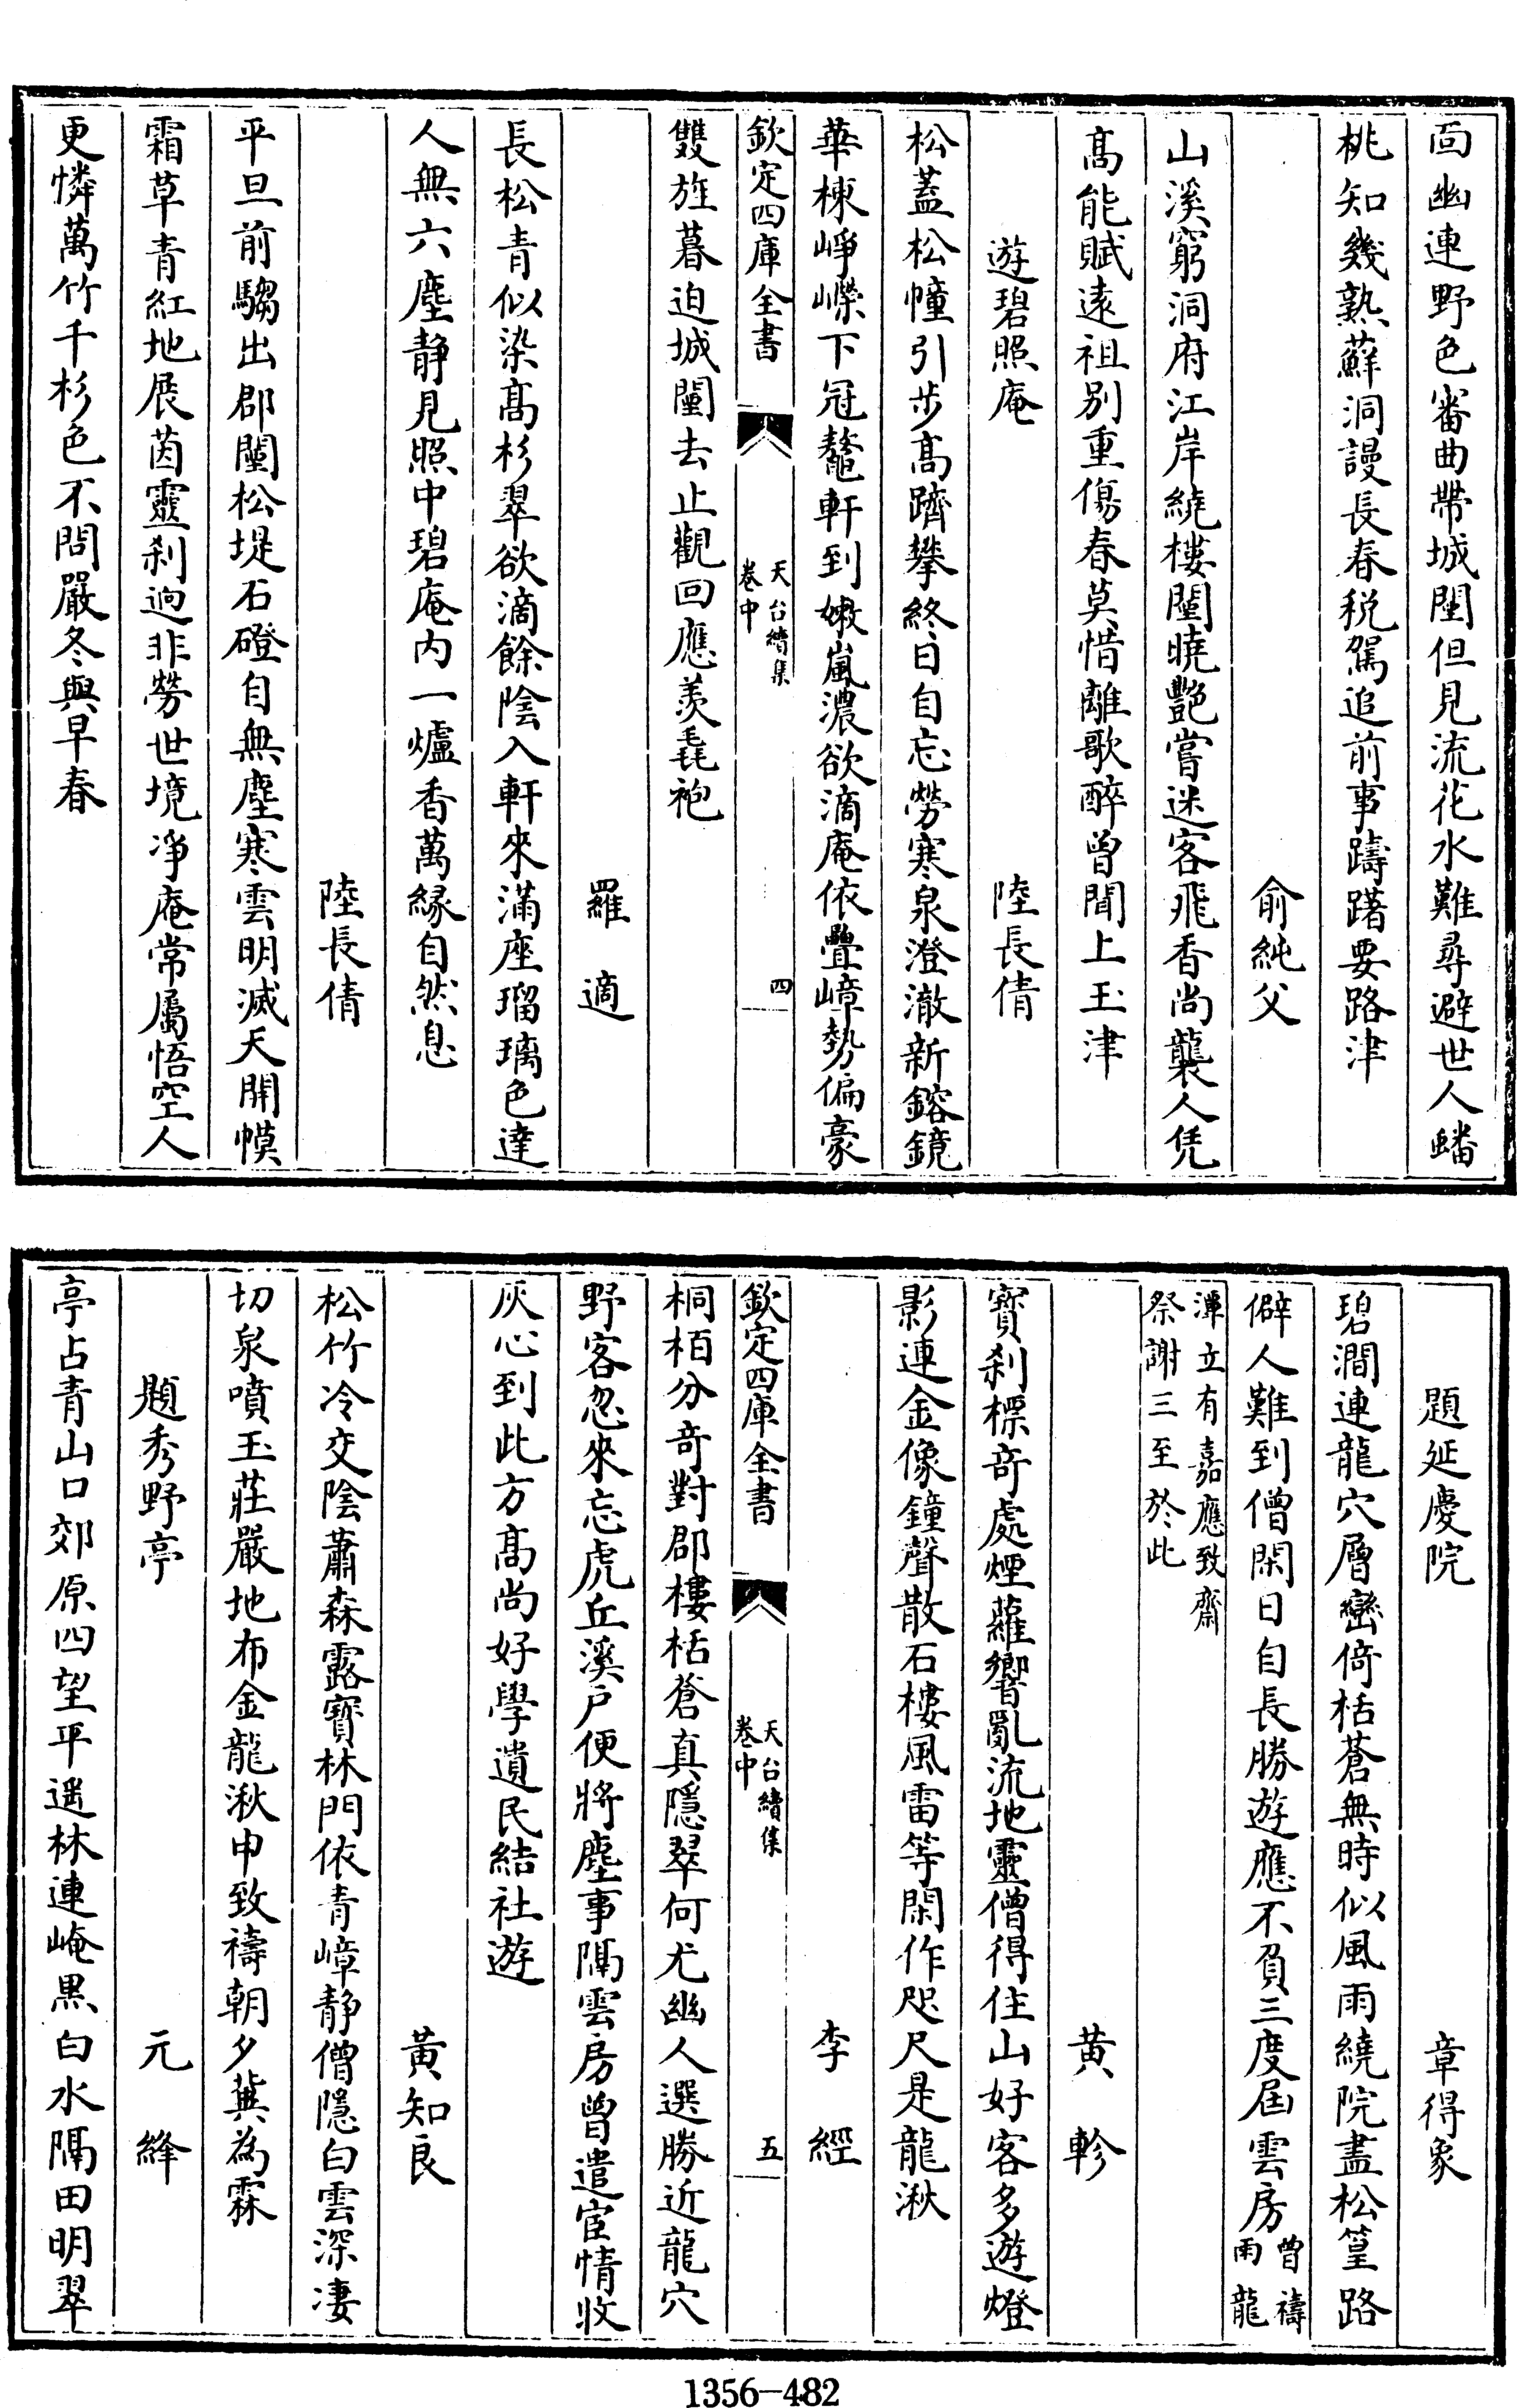 面幽連野色審曲帶城闉但見流花水難尋避世人蟠
桃知幾熟蘚洞謾長春税駕追前事躊躇要路津
俞純父
山溪窮洞府江岸繞樓闉曉艷嘗迷客飛香尚襲人凭
髙能賦逺祖别重傷春莫惜離歌醉曾聞上玉津
遊碧照庵 陸長倩
松蓋松幢引歩髙躋攀終日自忘勞寒泉澄澈新鎔鏡
華棟崢嶸下冠鼇軒到嫩嵐濃欲滴庵依疊嶂勢偏豪
欽定四庫全書 天台續集卷中 四
雙旌暮迫城闉去止觀回應羡毳袍
羅適
長松青似染髙杉翠欲滴餘陰入軒來滿座瑠璃色達
人無六塵静見照中碧庵内一爐香萬緣自然息
陸長倩
平旦前騶出郡闉松堤石磴自無塵寒雲明滅天開幙
霜草青紅地展茵靈刹逈非勞世境浄庵常屬悟空人
更憐萬竹千杉色不問嚴冬與早春
題延慶院 章得象
碧澗連龍穴層巒倚栝蒼無時似風雨繞院盡松篁路
僻人難到僧閑日自長勝遊應不負三度屆雲房曾禱雨龍
潭立有嘉應致齋祭謝三至於此
黄軫
寳刹標竒處煙蘿響亂流地靈僧得住山好客多遊燈
影連金像鐘聲散石樓風雷等閑作咫尺是龍湫
李經
欽定四庫全書 天台續集卷中 五
桐栢分竒對郡樓栝蒼真隱翠何尤幽人選勝近龍穴
野客忽來忘虎丘溪户便將塵事隔雲房曾遣宦情收
灰心到此方髙尚好學遺民結社遊
黄知良
松竹冷交陰蕭森露寳林門依青嶂静僧隱白雲深淒
切泉噴玉莊嚴地布金龍湫申致禱朝夕冀為霖
題秀野亭 元絳
亭占青山口郊原四望平遥林連崦黒白水隔田明翠
1356-482